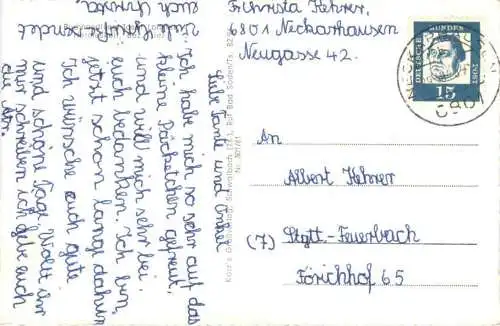 Fr. Christa Kehrer,
6801 Neckarhausen
Neugasse 42.
DEUTSCHE BUNDESPOST
15
6801
An
Albert Kehrer
(7) Stgtt.-Feuerbach
Förichhof 65
Liebe Tante und Onkel
Ich habe mich so sehr auf das
kleine Päcketchen gefreut,
und will mich sehr bei
euch bedanken. Ich bin
jetzt schon lange dahin
Ich wünsche euch gute
und schöne Tage. Wollt ihr
mir schreiben ich gebe euch
die Adr.
Viele Grüße sendet
euch Christa.